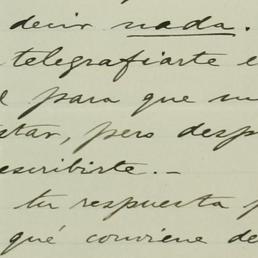 decir nada.
telegrafiarte e
para que no
star, pero desp
escribirte.-
tu respuesta p
qué conviene de